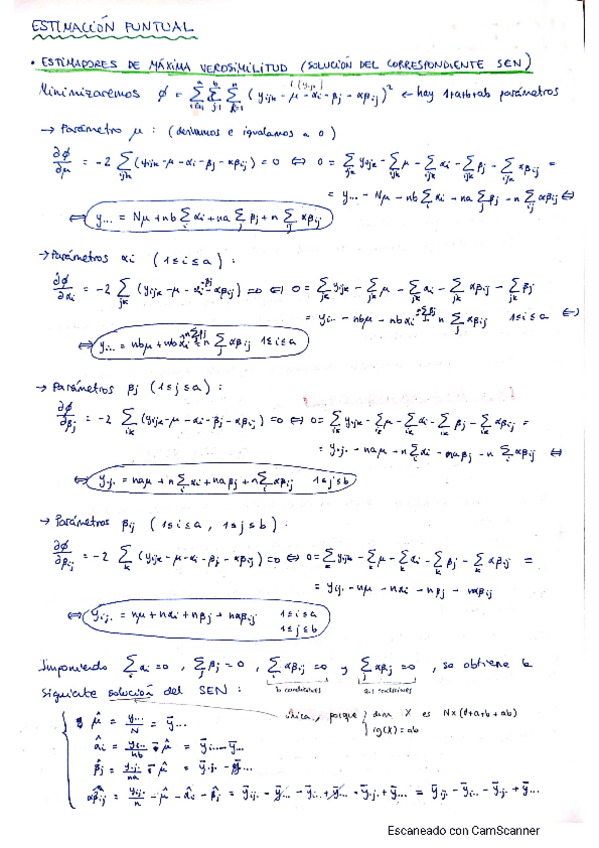 ESTIMACIÓN PUNTUAL
• ESTIMADORES DE MÁXIMA VEROSIMILITUD (SOLUCIÓN DEL CORRESPONDIENTE SEN)
Minimizaremos ϕ = Σ_{i=1}^{a} Σ_{j=1}^{b} Σ^{n} (y_ijk - μ - αi - βj - αβij)² ← hay 1+a+b+ab parámetros
→ Parámetro μ : (derivamos e igualamos a 0)
∂ϕ/∂μ = -2 Σ_{ijk} (y_ijk - μ - αi - βj - αβij) = 0 ⇔ 0 = Σ_{ijk} y_ijk - Σ_{ijk} μ - Σ_{ijk} αi - Σ_{ijk} βj - Σ_{ijk} αβij =
= y... - Nμ - nb Σ_i αi - na Σ_j βj - n Σ_{ij} αβij ⇔
⇔ y... = Nμ + nb Σ_i αi + na Σ_j βj + n Σ_{ij} αβij
→ Parámetros αi (1≤i≤a) :
∂ϕ/∂αi = -2 Σ_{jk} (y_ijk - μ - αi - βj - αβij) = 0 ⇔ 0 = Σ_{jk} y_ijk - Σ_{jk} μ - Σ_{jk} αi - Σ_{jk} αβij - Σ_{jk} βj
= yi.. - nbμ - nbαi - n Σ_j βj - n Σ_j αβij 1≤i≤a ⇔
⇔ yi.. = nbμ + nbαi + n Σ_j βj + n Σ_j αβij 1≤i≤a
→ Parámetros βj (1≤j≤a) :
∂ϕ/∂βj = -2 Σ_{ik} (y_ijk - μ - αi - βj - αβij) = 0 ⇔ 0 = Σ_{ik} y_ijk - Σ_{ik} μ - Σ_{ik} αi - Σ_{ik} βj - Σ_{ik} αβij =
= y.j. - naμ - n Σ_i αi - naβj - n Σ_i αβij ⇔
⇔ y.j. = naμ + n Σ_i αi + naβj + n Σ_i αβij 1≤j≤b
→ Parámetros βij (1≤i≤a, 1≤j≤b) :
∂ϕ/∂βij = -2 Σ_k (y_ijk - μ - αi - βj - αβij) = 0 ⇔ 0 = Σ_k y_ijk - Σ_k μ - Σ_k αi - Σ_k βj - Σ_k αβij =
= yij. - nμ - nαi - nβj - nαβij
⇔ yij. = nμ + nαi + nβj + nαβij 1≤i≤a
1≤j≤b
Imponiendo Σ_i αi = 0 , Σ_j βj = 0 , Σ_i αβij = 0 y Σ_j αβij = 0 , se obtiene la
b condiciones condiciones
siguiente solución del SEN :
única, porque { dim X es N×(1+a+b+ab)
rg(X) = ab
μ̂ = y.../N = ȳ...
α̂i = yi../nb - μ̂ = ȳi.. - ȳ...
β̂j = y.j./na - μ̂ = ȳ.j. - ȳ...
αβ̂ij = yij./n - μ̂ - α̂i - β̂j = ȳij. - ȳ... - ȳi.. + ȳ... - ȳ.j. + ȳ... = ȳij. - ȳi.. - ȳ.j. + ȳ...
Escaneado con CamScanner